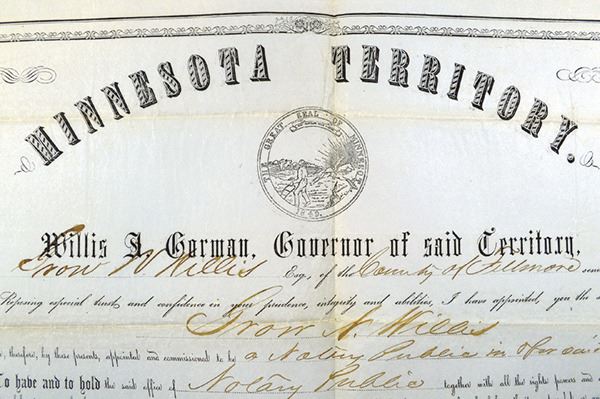 MINNESOTA TERRITORY.
THE GREAT SEAL OF MINNESOTA
1849.
Willis A. Gorman, Governor of said Territory,
Esq., of the County of Fillmore
Reposing especial trust and confidence in your prudence, integrity and abilities, I have appointed, you the
Willis
therefore, by these presents, appointed and commissioned to be a Notary Public in & for said
To have and to hold the said office of Notary Public together with all the rights powers and